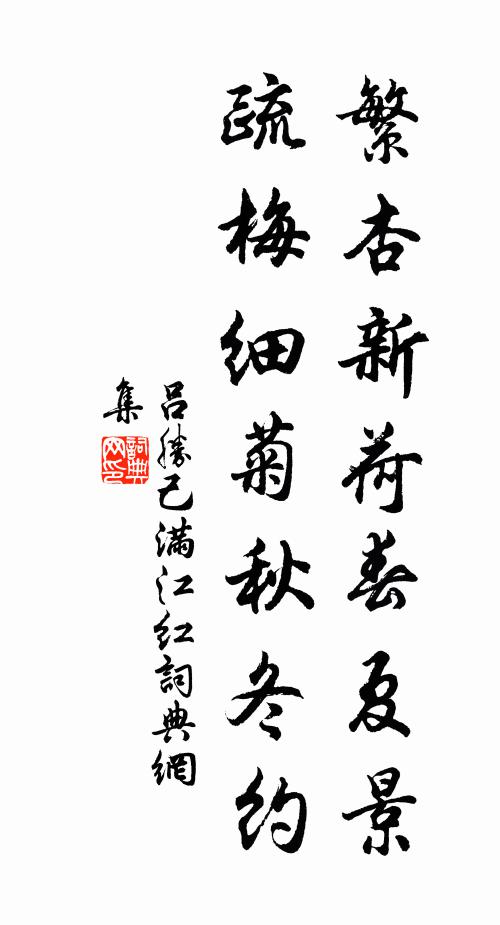 繁杏新荷春夏景
疏梅细菊秋冬约
吕勝己满江红詞典網
集
詞典
网印